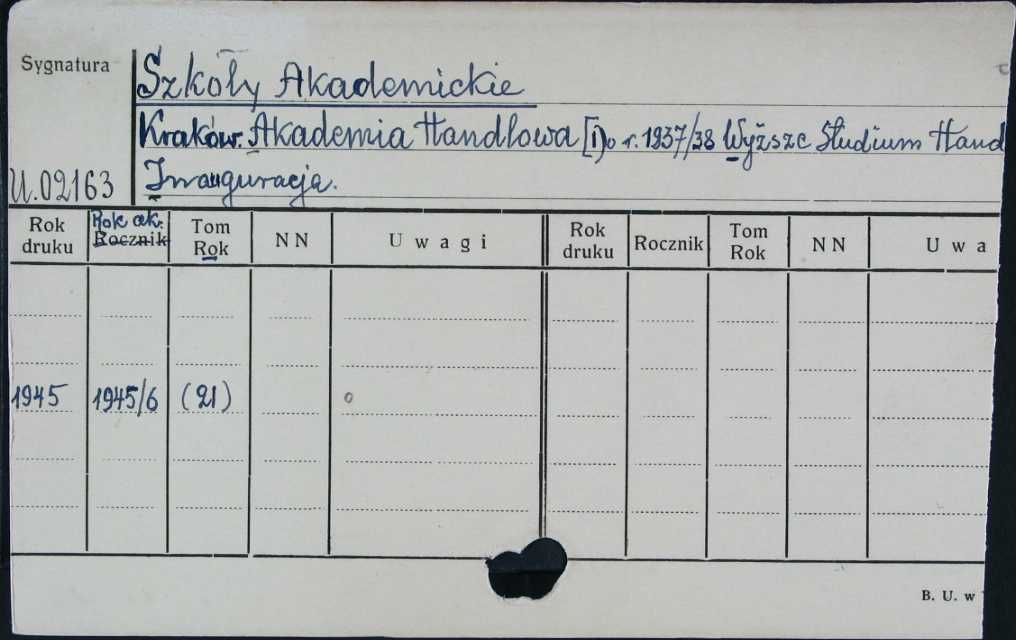 Sygnatura
Szkoły Akademickie
Kraków. Akademia Handlowa [i) o r. 1937/38 Wyższe Studium Hand
U.02163
Inauguracja.
Rok druku
Rok ak.
Rocznik
Tom Rok
NN
Uwagi
Rok druku
Rocznik
Tom Rok
NN
Uwa
1945
1945/6
(21)
B. U. w